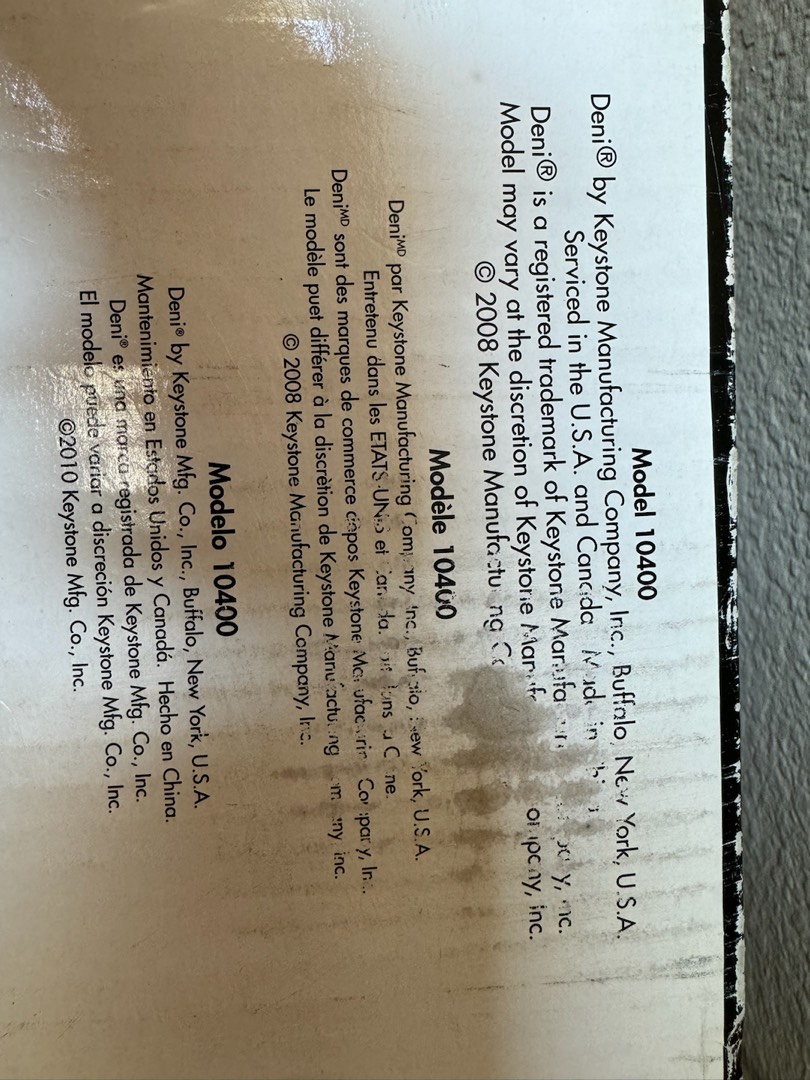 Model 10400
Deni® by Keystone Manufacturing Company, Inc., Buffalo, New York, U.S.A.
Serviced in the U.S.A. and Canada. Made in
Deni® is a registered trademark of Keystone Manufacturing Company, Inc.
Model may vary at the discretion of Keystone Company, Inc.
© 2008 Keystone Manufacturing
Modèle 10400
Deni ᴹᴰ par Keystone Manufacturing Company Inc., Buffalo, New York, U.S.A.
Entretenu dans les ETATS-UNIS et
Deni ᴹᴰ sont des marques de commerce Keystone Manufacturing Company,
Le modèle puet différer à la discrètion de Keystone Manufacturing inc.
© 2008 Keystone Manufacturing Company, Inc.
Modelo 10400
Deni® by Keystone Mfg. Co., Inc., Buffalo, New York, U.S.A.
Mantenimiento en Estados Unidos y Canadá. Hecho en China.
Deni® es una marca registrada de Keystone Mfg. Co., Inc.
El modelo puede variar a discreción Keystone Mfg. Co., Inc.
©2010 Keystone Mfg. Co., Inc.